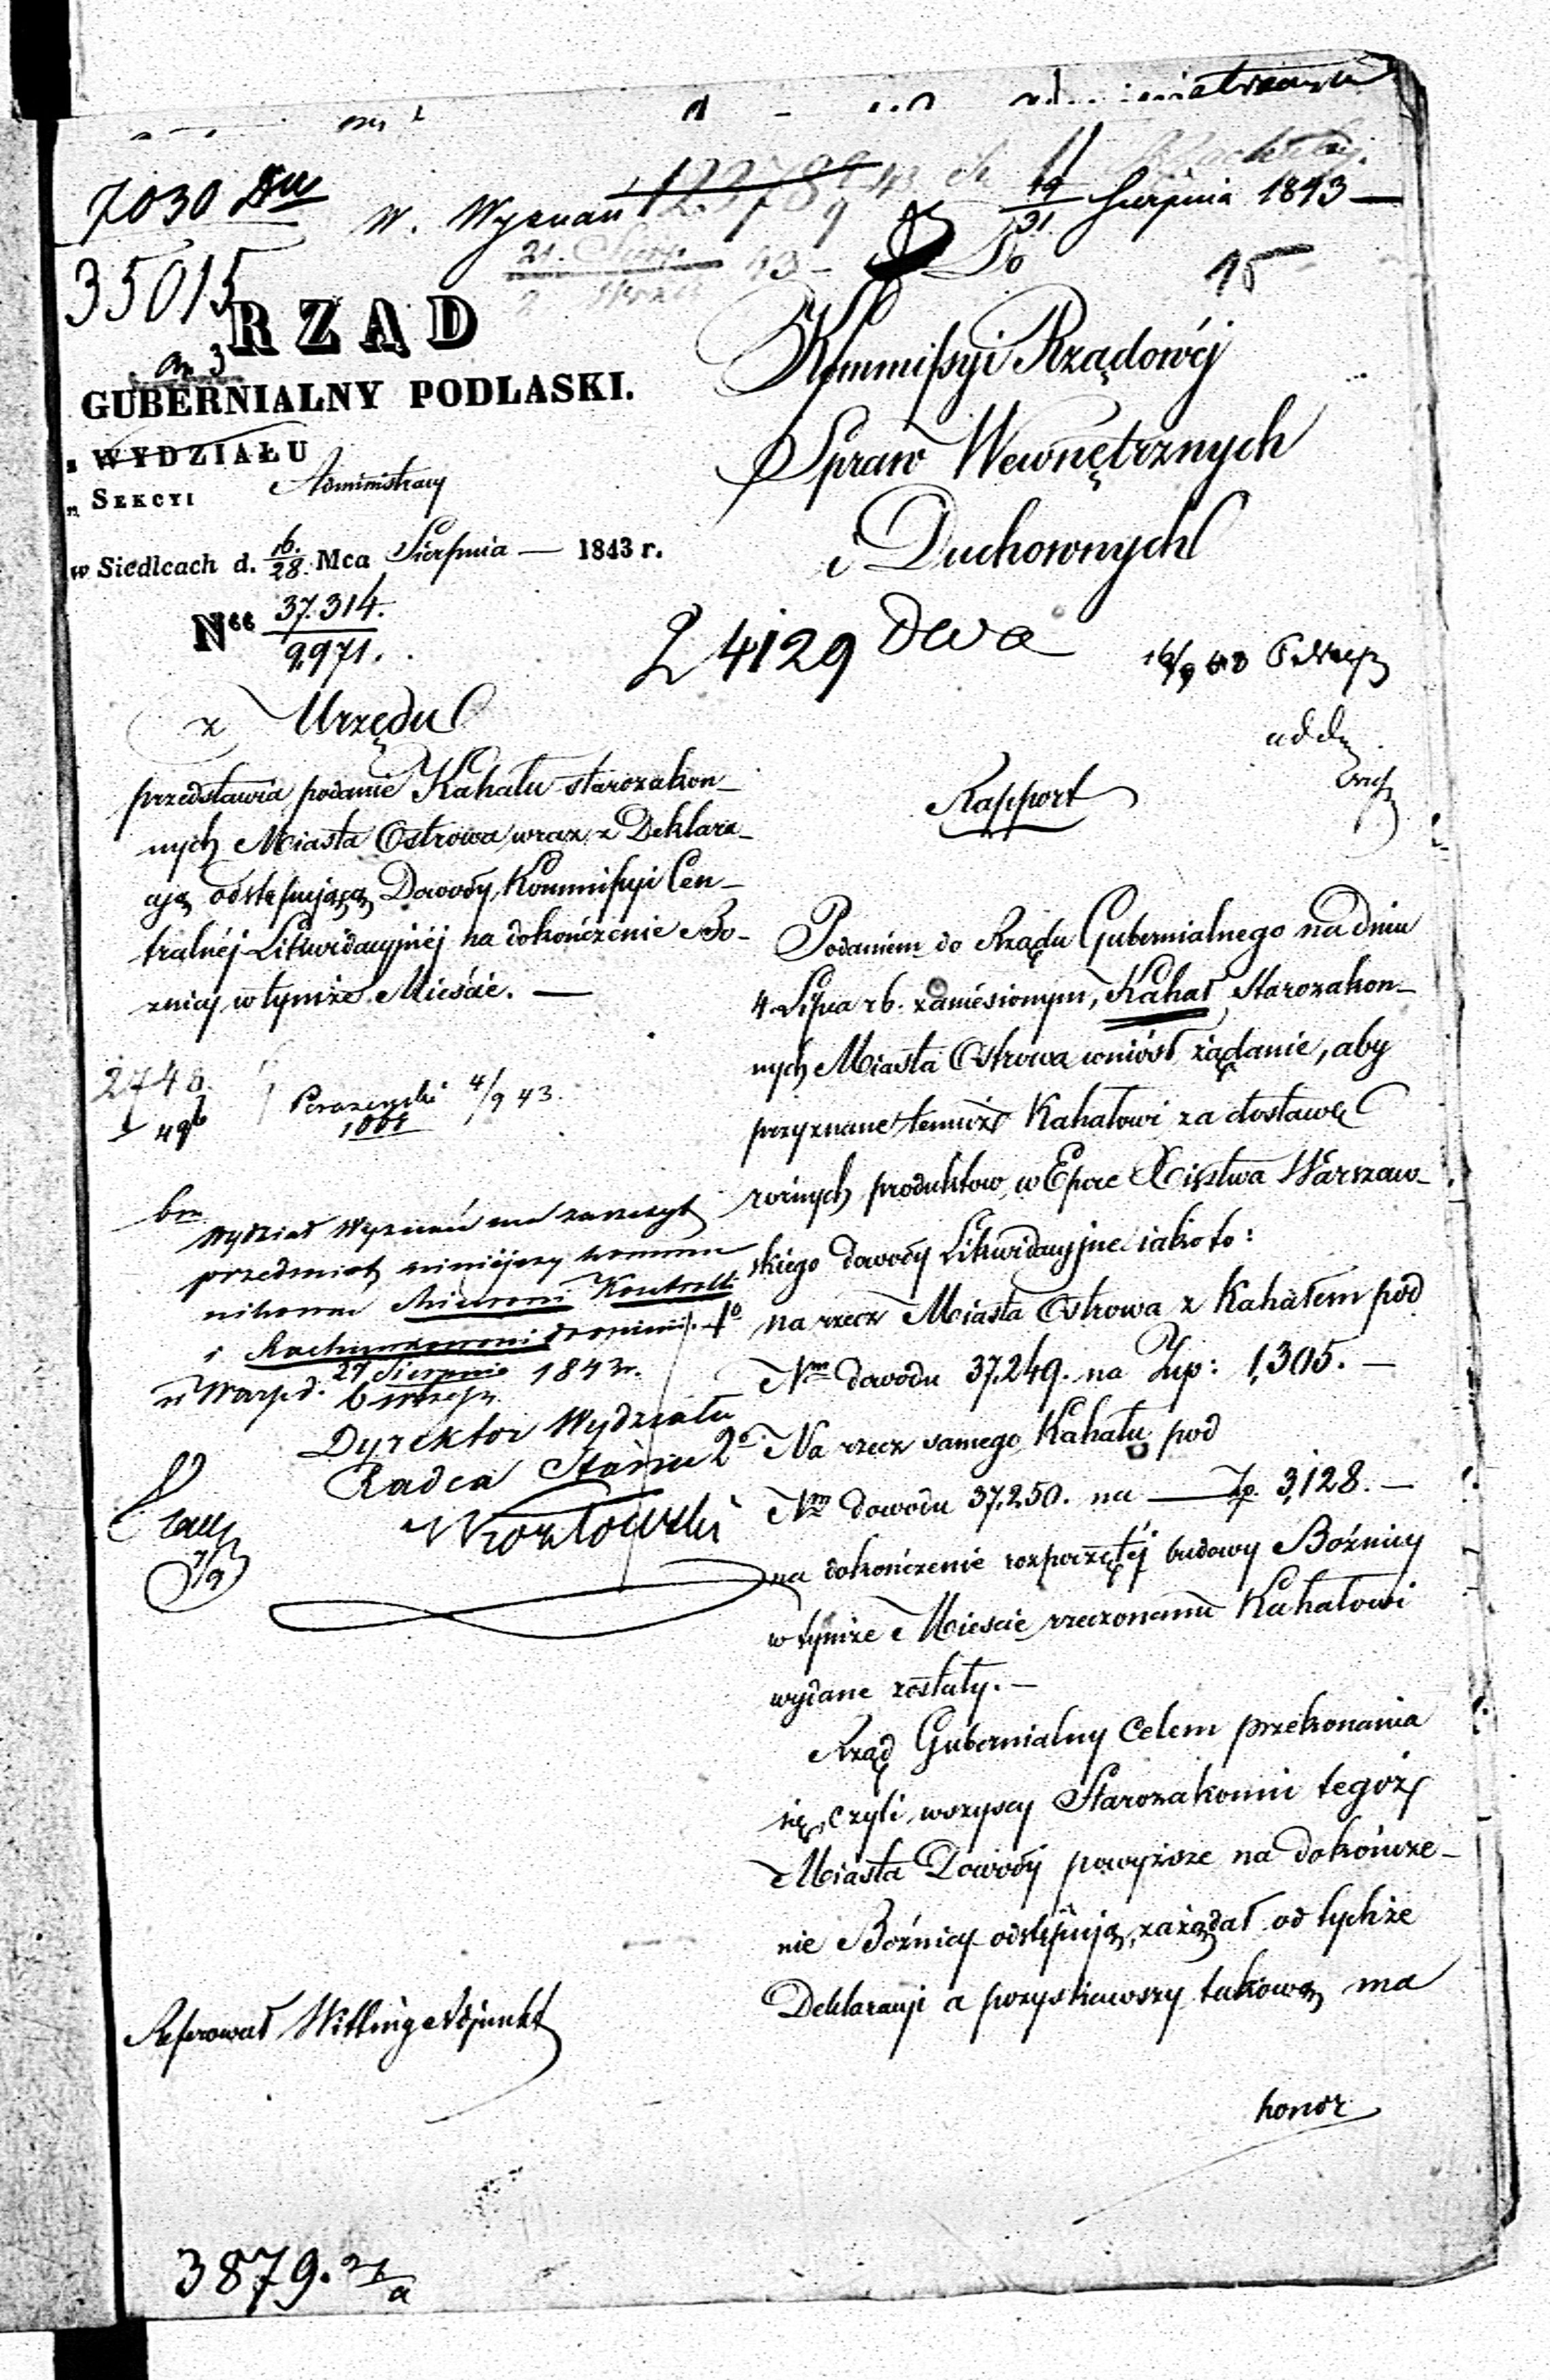 7030
W. Wyznań
19/31 Sierpnia 1843 —
35015
15
RZĄD
GUBERNIALNY PODLASKI.
WYDZIAŁU
SEKCYI Administracy
w Siedlcach d. 16./28. Mca Sierpnia — 1843 r.
Nʳᵒ 37.314./9,971.
Do
Kommissyi Rządowéj
Spraw Wewnętrznych
i Duchownych
24129 dwa
z Urzędu
przedstawia podanie Kahału starozakon-
nych Miasta Ostrowa wraz z Deklara-
cją odstępującą Dowody Kommissyi Cen-
tralnéj Likwidacyjnéj na dokończenie Bo-
znicy w tymże Mieście. —
2748.
4/9 43.
Wydział Wyznań ma zaszczyt
przedmiot niniejszy
Kontroli
i
w Warsz d. 27 Sierpnia 1843 r.
Dyrektor Wydziału
Radca Stanu
Rapport
Podaniem do Rządu Gubernialnego na dniu
4. Lipca rb. zaniesionym, Kahał Starozakon-
nych Miasta Ostrowa wniósł żądanie, aby
przyznane temuż Kahałowi za dostawę
rożnych produktow w Epoce Xięstwa Warszaw-
skiego dowody Likwidacyjne iako to:
na rzecz Miasta Ostrowa z Kahałem pod
Nm dowodu 37,249. na Złp: 1,305. —
Na rzecz samego Kahału pod
Nm dowodu 37,250. na — Zp. 3,128. —
na dokończenie rozpoczętéj budowy Bożnicy
w tymże Mieście rzeczonemu Kahałowi
wydane zostały. —
Rząd Gubernialny Celem przekonania
się, czyli wszyscy Starozakonni tegoż
Miasta Dowody powyższe na dokończe-
nie Bożnicy odstępują, zażądał od tychże
Deklaracji a pozyskawszy takową ma
Referował Adjunkt
honor
3879.